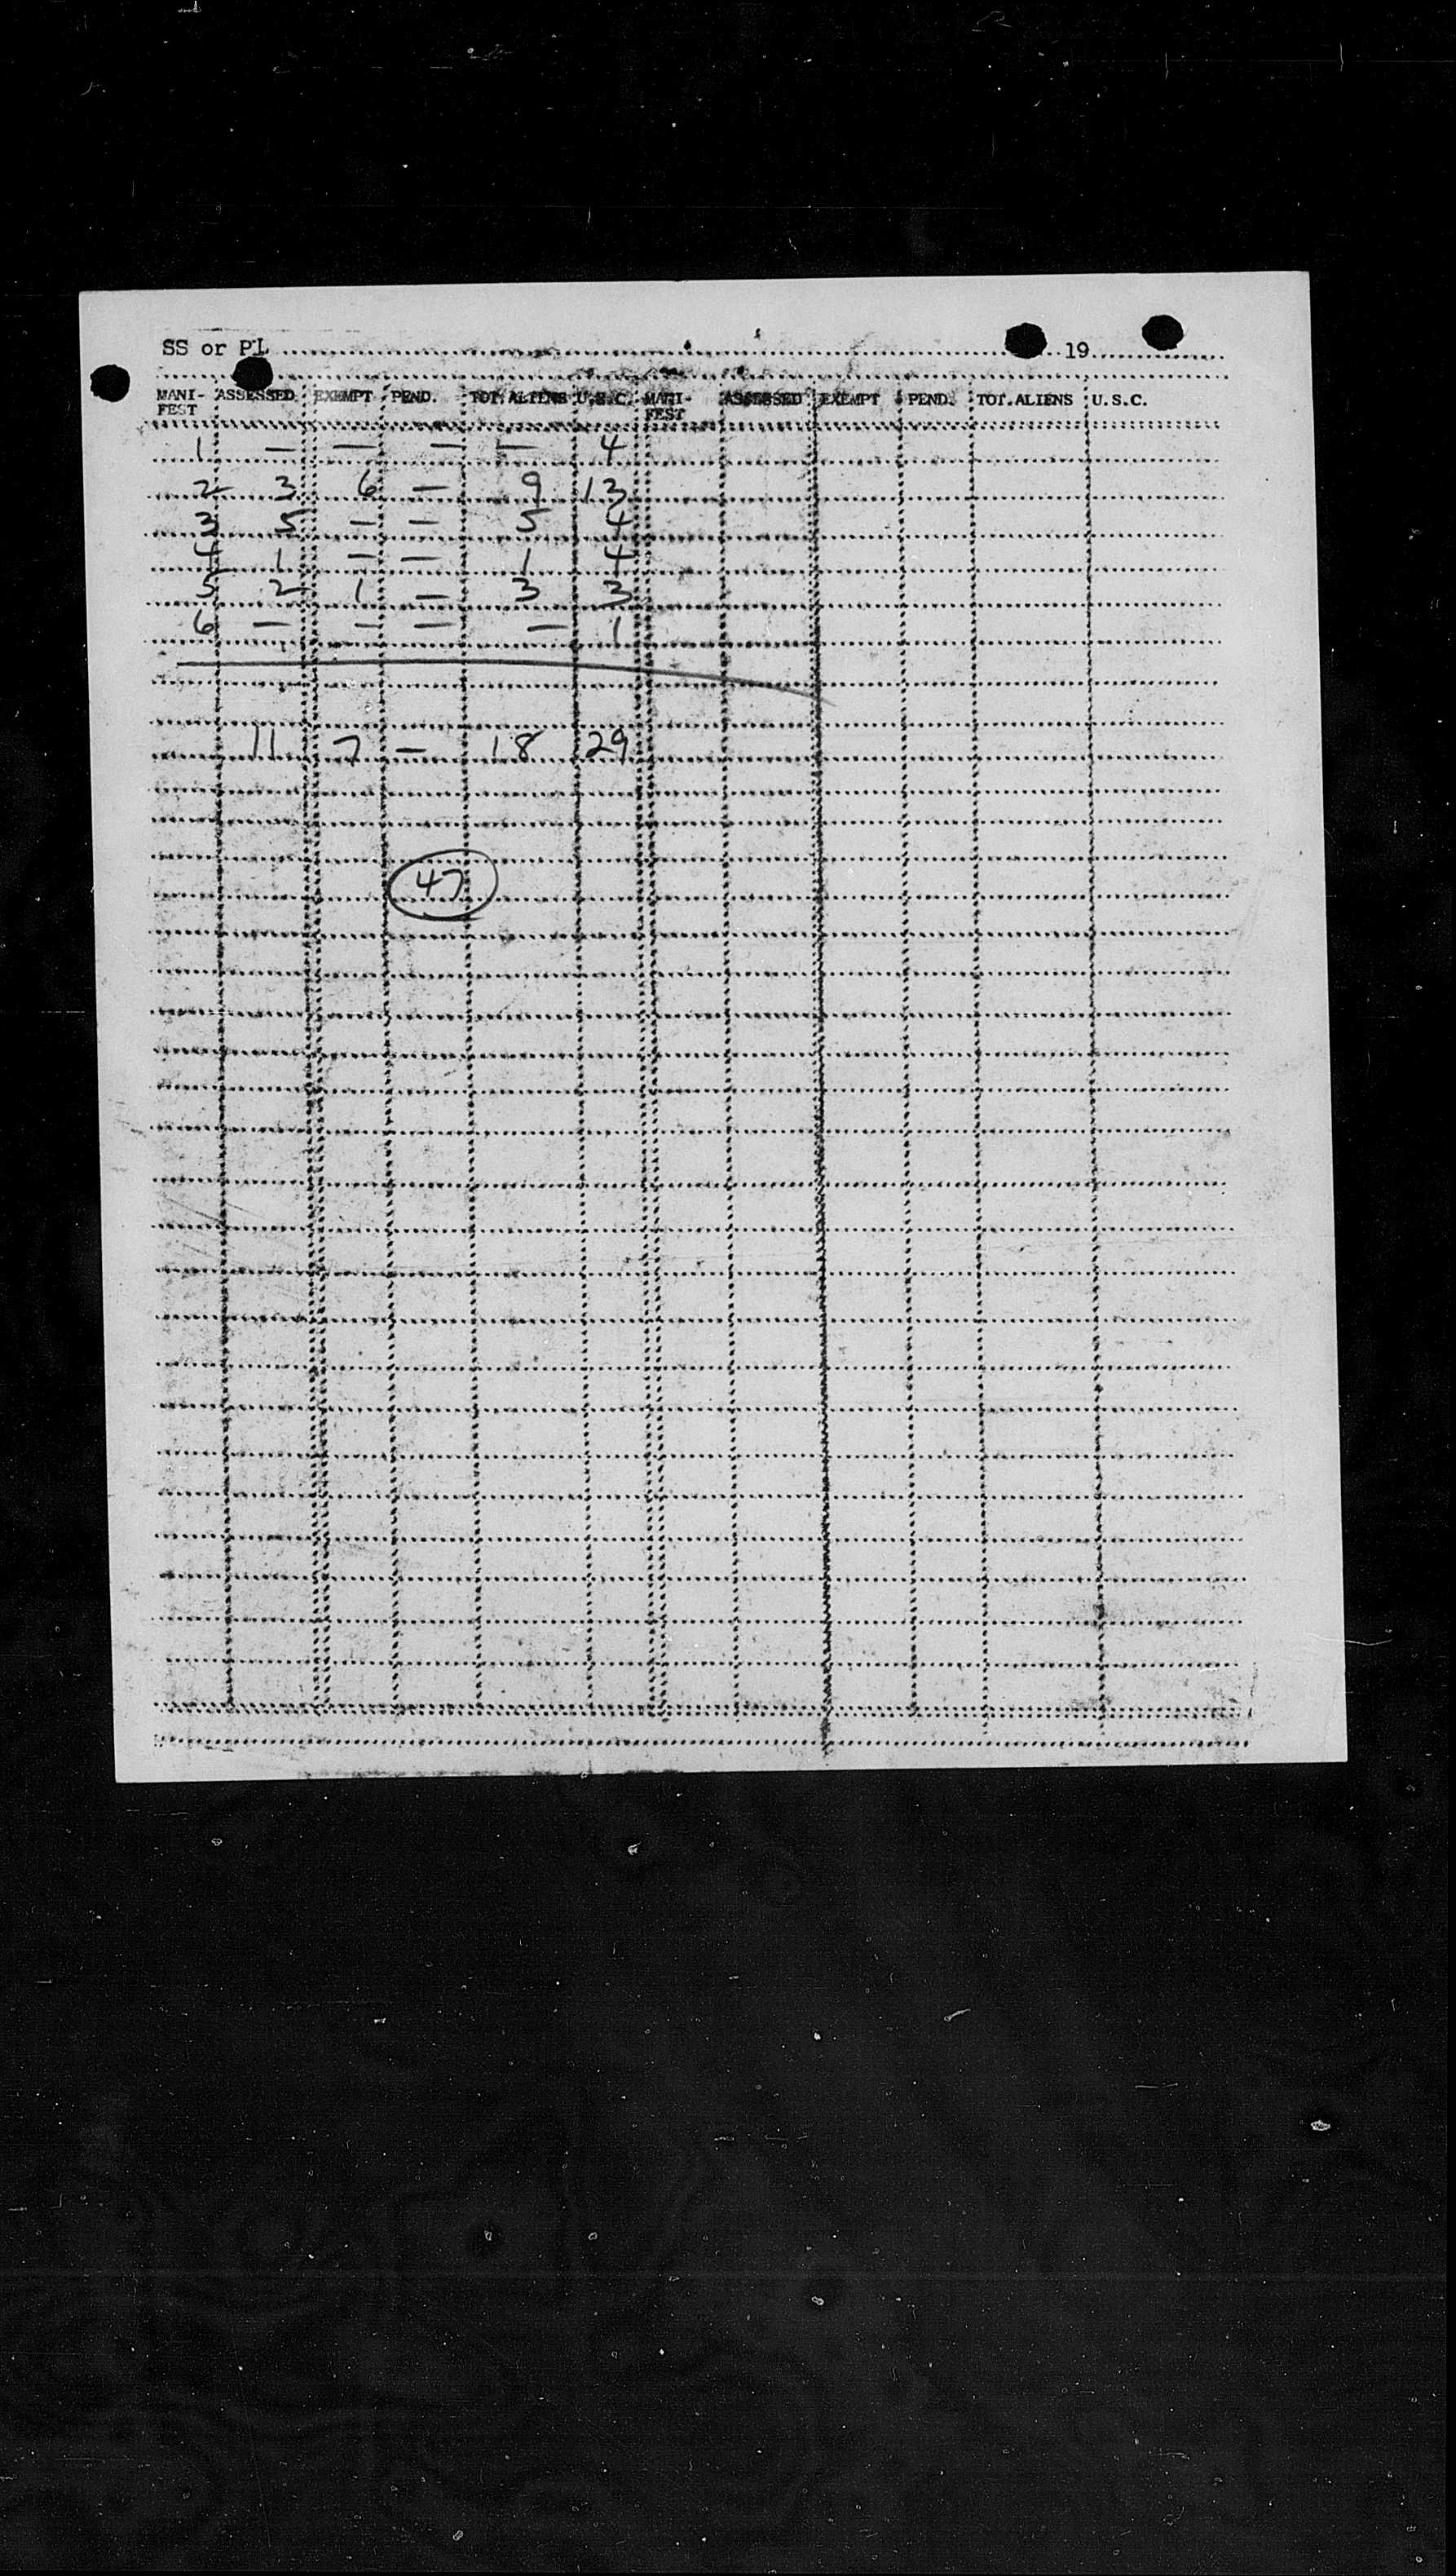 SS or PL 19
MANI-FEST ASSESSED EXEMPT PEND. TOT. ALIENS U.S.C. MANI-FEST ASSESSED EXEMPT PEND. TOT. ALIENS U.S.C.
1 — — — — 4
2 3 6 — 9 13
3 5 — — 5 4
4 1 — — 1 4
5 2 1 — 3 3
6 — — — — 1
11 7 — 18 29
47